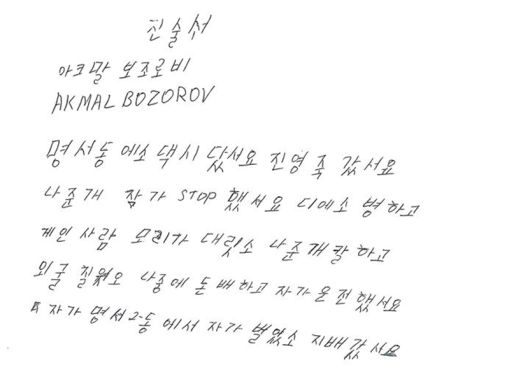 진술서
아크말 보조로비
AKMAL BOZOROV
명서동 에소 댁시 탔서요 진영 쪽 갔서요
나중개 잠가 STOP 했서요 디에소 병하고
게인 사람 모리가 대릿소 나중개 칼 하고
외굴 찔웠오 나중에 돈 배하고 자가 운전 했서요
자가 명서2동 에서 자가 벌었소 지배 갔서요